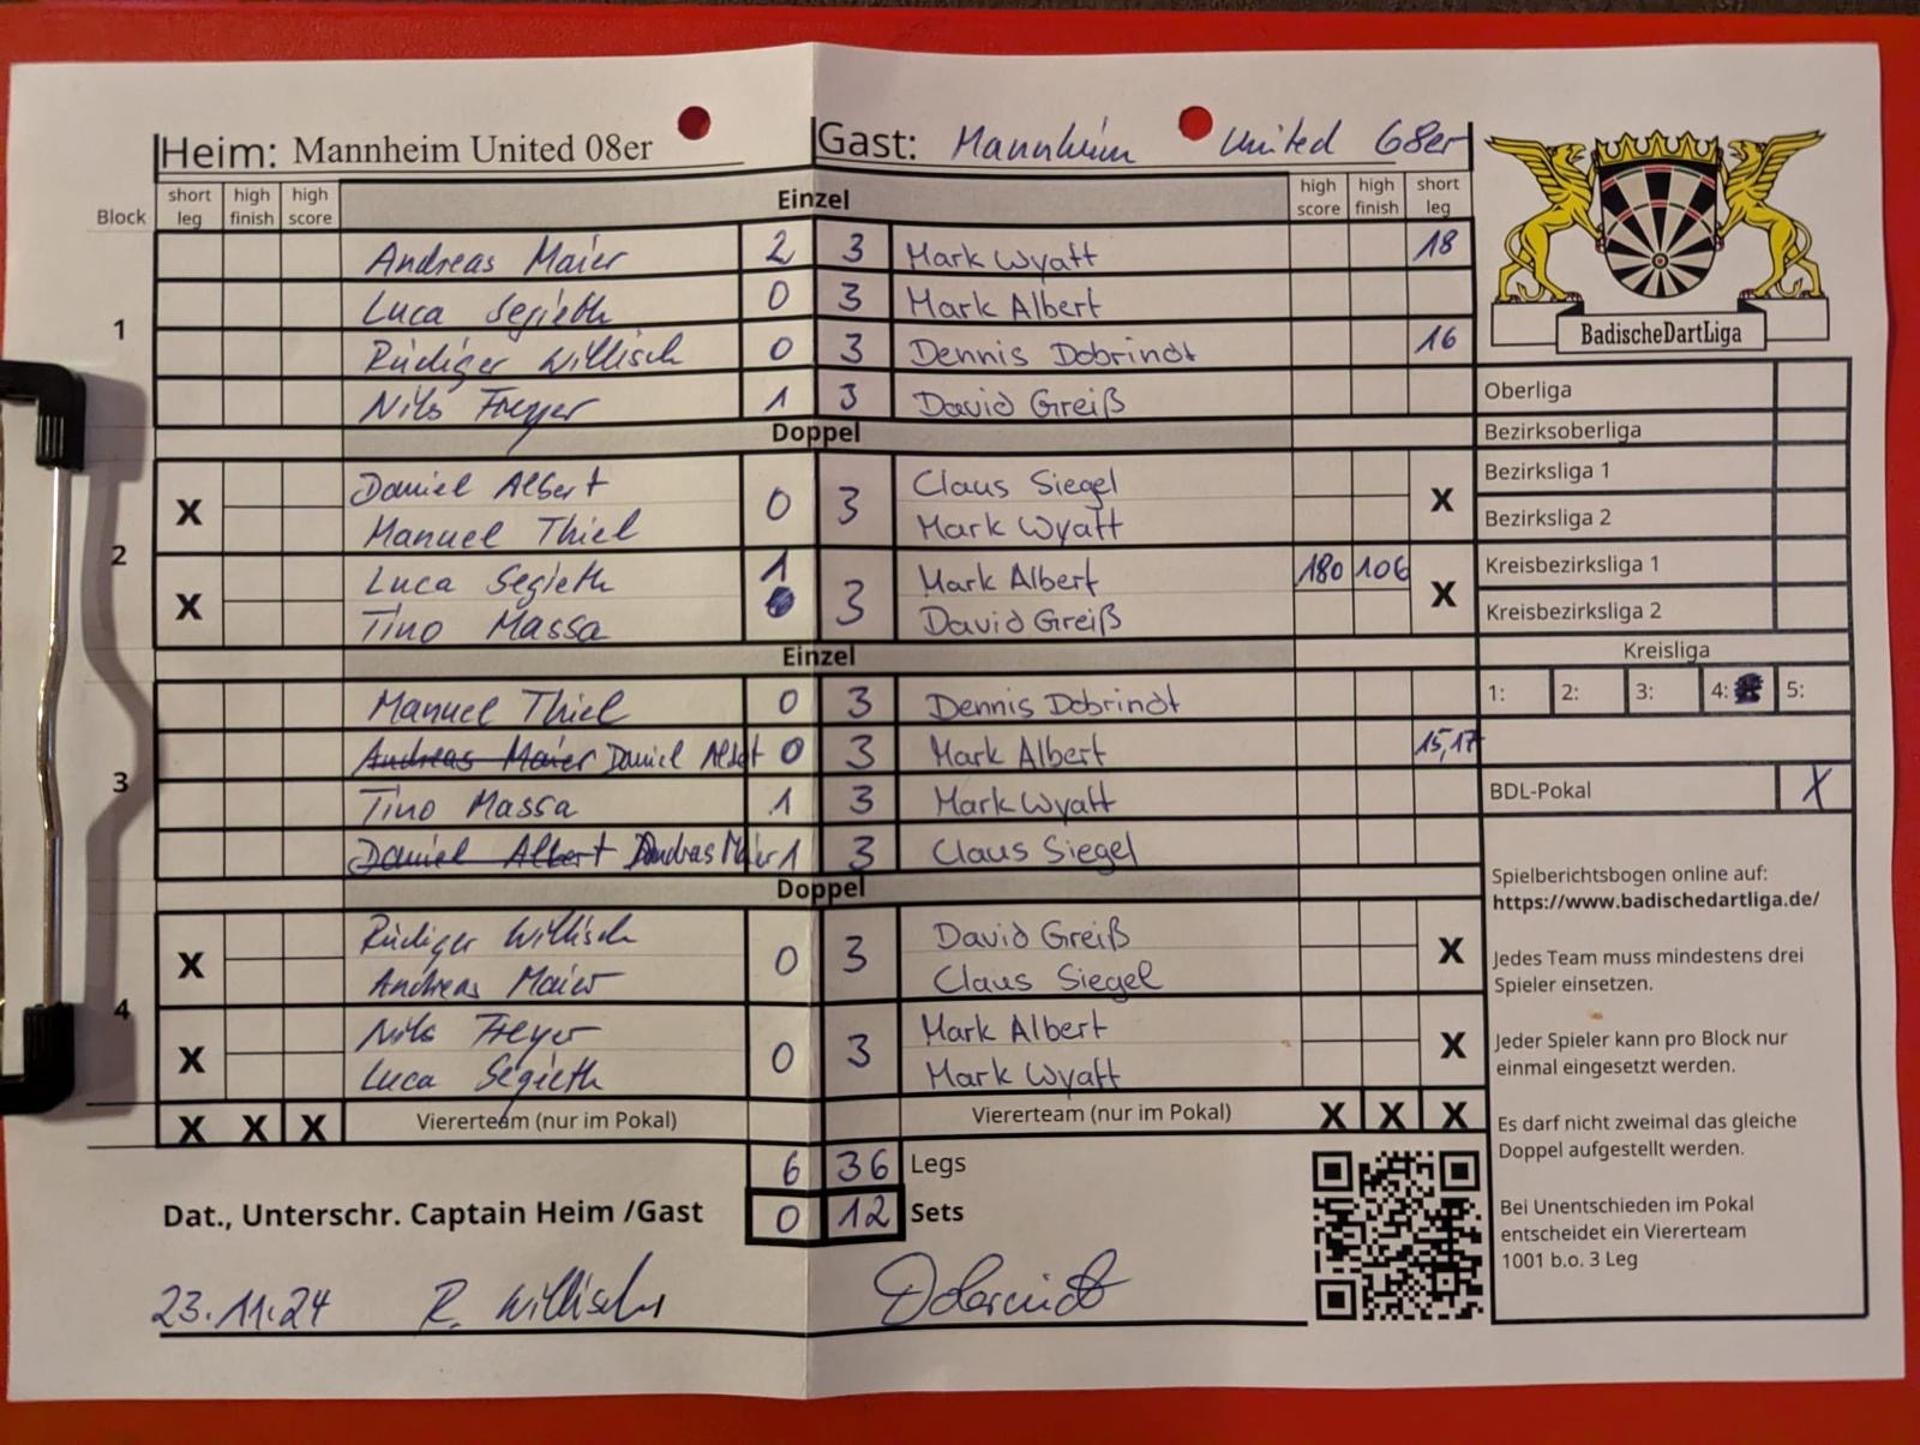 Heim: Mannheim United 08er Gast: Mannheim United 68er
Block short leg high finish high score Einzel high score high finish short leg
Andreas Maier 2 3 Mark Wyatt 18
Luca Segieth 0 3 Mark Albert
1
Rüdiger Willisch 0 3 Dennis Dobrindt 16
Nils Freyer 1 3 David Greiß
Doppel
X Daniel Albert 0 3 Claus Siegel X
Manuel Thiel Mark Wyatt
2
X Luca Segieth 1 3 Mark Albert 180 106 X
Tino Massa David Greiß
Einzel
Manuel Thiel 0 3 Dennis Dobrindt
Andreas Maier Daniel Albert 0 3 Mark Albert 15,17
3
Tino Massa 1 3 Mark Wyatt
Daniel Albert Andreas Maier 1 3 Claus Siegel
Doppel
X Rüdiger Willisch 0 3 David Greiß X
Andreas Maier Claus Siegel
4
X Nils Freyer 0 3 Mark Albert X
Luca Segieth Mark Wyatt
X X X Viererteam (nur im Pokal) Viererteam (nur im Pokal) X X X
6 36 Legs
Dat., Unterschr. Captain Heim /Gast 0 12 Sets
23.11.24 R. Willisch Dobrindt
BadischeDartLiga
Oberliga
Bezirksoberliga
Bezirksliga 1
Bezirksliga 2
Kreisbezirksliga 1
Kreisbezirksliga 2
Kreisliga
1: 2: 3: 4: 5:
BDL-Pokal X
Spielberichtsbogen online auf:
https://www.badischedartliga.de/
Jedes Team muss mindestens drei
Spieler einsetzen.
Jeder Spieler kann pro Block nur
einmal eingesetzt werden.
Es darf nicht zweimal das gleiche
Doppel aufgestellt werden.
Bei Unentschieden im Pokal
entscheidet ein Viererteam
1001 b.o. 3 Leg